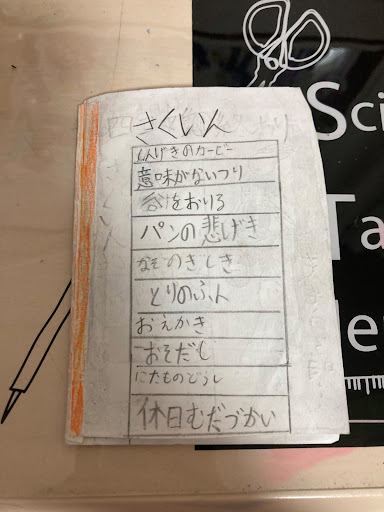 さくいん
しんげきのカービー
意味がないつり
谷をおりろ
パンの悲げき
なぞのぎしき
とりのふん
おえかき
おそだし
にたものどうし
休日むだづかい
Sci
Ta